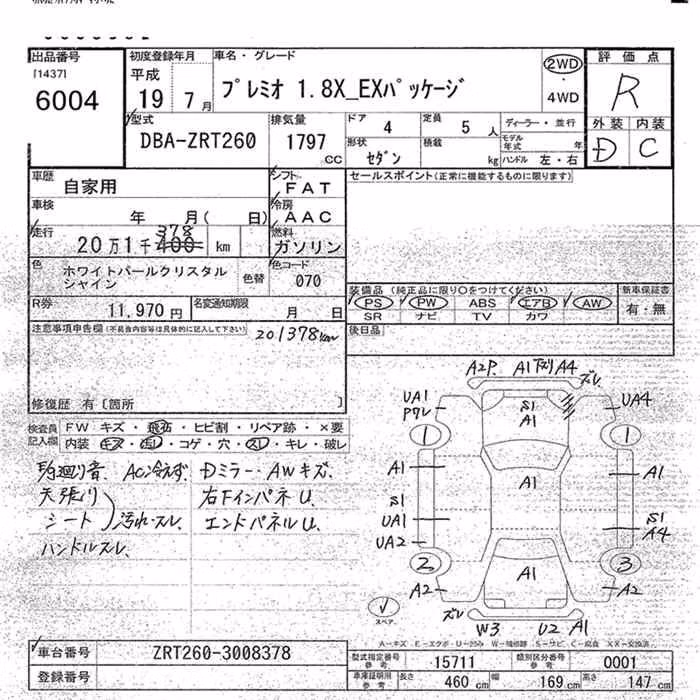 出品番号
[1437]
6004
初度登録年月
平成
19 7月
車名・グレード
プレミオ 1.8X_EXパッケージ
2WD
4WD
評価点
R
外装 内装
D C
型式
DBA-ZRT260
排気量
1797
CC
ドア 4
定員 5人
ディーラー・並行
形状 セダン
積載 kg
モデル年式 年
ハンドル 左・右
車歴 自家用
シフト FAT
セールスポイント(正常に機能するものに限ります)
車検 年 月( 日)
冷房 AAC
走行 20万1千400 km
378
燃料 ガソリン
色 ホワイトパールクリスタル
シャイン
色替
色コード 070
装備品 (純正品に限り○をつけてください)
新車保証書
PS PW ABS エアB AW
SR ナビ TV カワ
有・無
R券 11,970円
名変通知期限 月 日
後日品
注意事項申告欄(不具合内容等は具体的に記入して下さい)
201378km
修復歴 有 [箇所 ]
検査員記入欄
FW キズ・飛石・ヒビ割・リペア跡・×要
内装 キズ・汚れ・コゲ・穴・スレ・キレ・破レ
足廻り音、AC冷えず、Dミラー・AWキズ、
天張り
シート)汚れ・スレ、
右FインパネU、
エンドパネルU、
ハンドルスレ、
A2P. A1下刈A4
ズレ
UA1
P7レ
S1
A1
UA4
1
1
A1
A1
A1
S1
UA1
UA2
S1
A4
2
3
A2
A1
A2
スペア
ズレ
W3 U2 A1
A-キズ E-エクボ・U-凹み W-補修跡 S-サビ C-腐食 XX-交換済
車台番号 ZRT260-3008378
登録番号
型式指定番号 参考 15711
類別区分番号 参考 0001
車庫証明用参考
長さ 460cm
幅 169cm
高さ 147cm